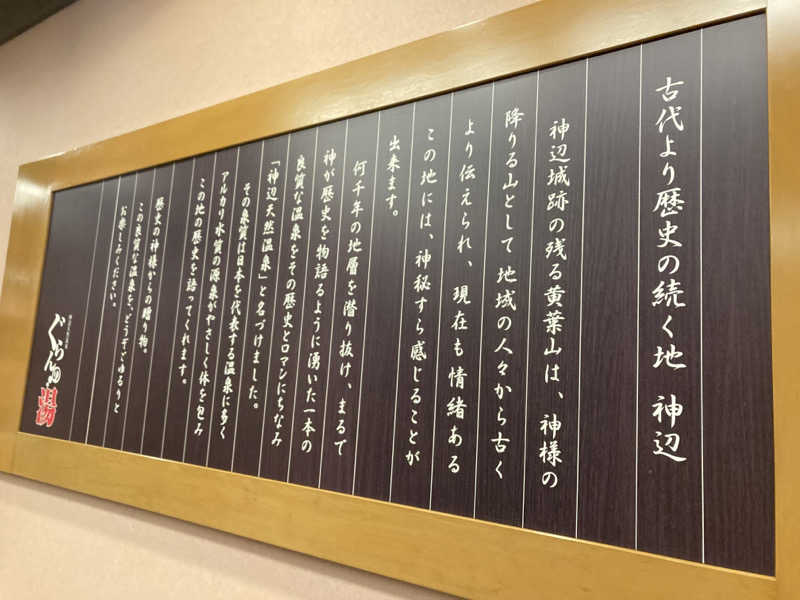 古代より歴史の続く地　神辺
神辺城跡の残る黄葉山は、神様の
降りる山として地域の人々から古く
より伝えられ、現在も情緒ある
この地には、神秘すら感じることが
出来ます。
何千年の地層を潜り抜け、まるで
神が歴史を物語るように湧いた一本の
良質な温泉をその歴史とロマンにちなみ
「神辺天然温泉」と名づけました。
その泉質は日本を代表する温泉に多く
アルカリ水質の源泉がやさしく体を包み
この地の歴史を語ってくれます。
歴史の神様からの贈り物。
この良質な温泉を、どうぞごゆるりと
お楽しみください。
ぐらんの湯